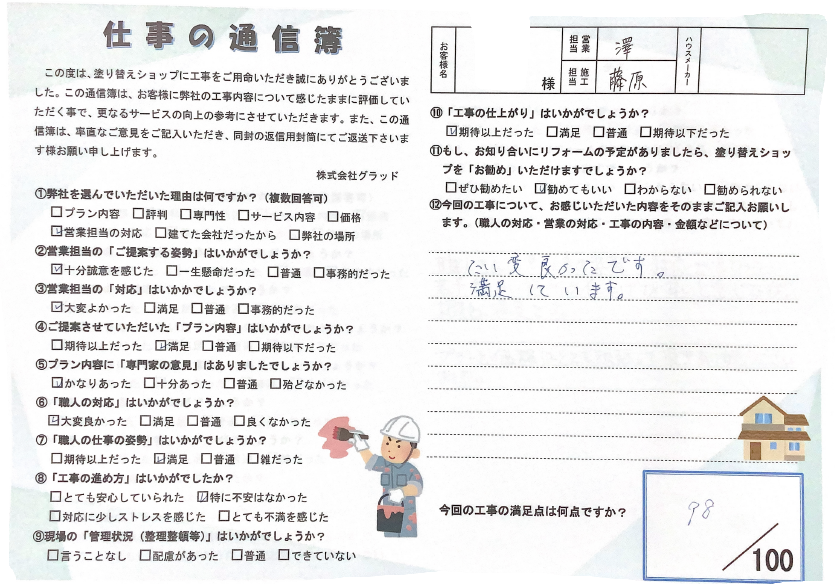 仕事の通信簿
この度は、塗り替えショップに工事をご用命いただき誠にありがとうございま
した。この通信簿は、お客様に弊社の工事内容について感じたままに評価してい
ただく事で、更なるサービスの向上の参考にさせていただきます。また、この通
信簿は、率直なご意見をご記入いただき、同封の返信用封筒にてご返送下さいま
す様お願い申し上げます。
株式会社グラッド
①弊社を選んでいただいた理由は何ですか？（複数回答可）
□プラン内容 □評判 □専門性 □サービス内容 □価格
☑営業担当の対応 □建てた会社だったから □弊社の場所
②営業担当の「ご提案する姿勢」はいかがでしょうか？
☑十分誠意を感じた □一生懸命だった □普通 □事務的だった
③営業担当の「対応」はいかかでしょうか？
☑大変よかった □満足 □普通 □事務的だった
④ご提案させていただいた「プラン内容」はいかがでしょうか？
□期待以上だった ☑満足 □普通 □期待以下だった
⑤プラン内容に「専門家の意見」はありましたでしょうか？
☑かなりあった □十分あった □普通 □殆どなかった
⑥「職人の対応」はいかがでしょうか？
☑大変良かった □満足 □普通 □良くなかった
⑦「職人の仕事の姿勢」はいかがでしょうか？
□期待以上だった ☑満足 □普通 □雑だった
⑧「工事の進め方」はいかがでしたか？
□とても安心していられた ☑特に不安はなかった
□対応に少しストレスを感じた □とても不満を感じた
⑨現場の「管理状況（整理整頓等）」はいかがでしょうか？
□言うことなし □配慮があった □普通 □できていない
お客様名 様 営業担当 澤 ハウスメーカー
施工担当 藤原
⑩「工事の仕上がり」はいかがでしょうか？
☑期待以上だった □満足 □普通 □期待以下だった
⑪もし、お知り合いにリフォームの予定がありましたら、塗り替えショッ
プを「お勧め」いただけますでしょうか？
□ぜひ勧めたい ☑勧めてもいい □わからない □勧められない
⑫今回の工事について、お感じいただいた内容をそのままご記入お願いし
ます。（職人の対応・営業の対応・工事の内容・金額などについて）
たい変良かったです。
満足しています。
今回の工事の満足点は何点ですか？
98
／100